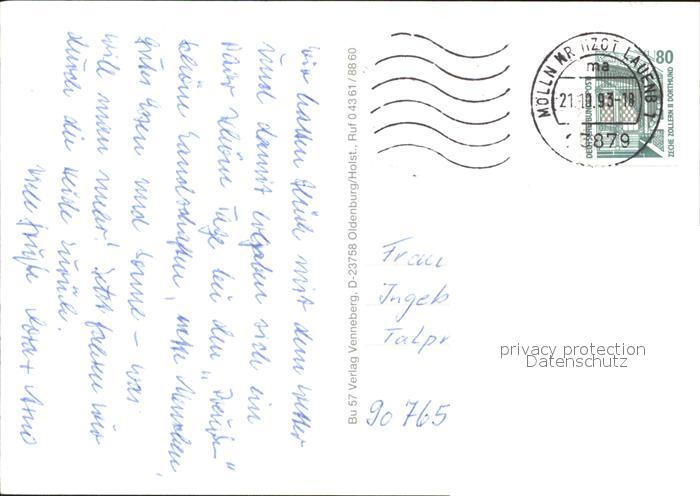 wir hatten Glück mit dem Wetter
und damit ergaben sich ein
paar schöne Tage bei den "
schöne Landschaften, nette Menschen,
gutes Essen und Sonne – was
will man mehr! Jetzt fahren wir
durch die Heide zurück.
Viele Grüße
Bu 57 Verlag Venneberg, D-23758 Oldenburg/Holst., Ruf 0 43 61 / 88 60
MÖLLN
21.10.93-18
879
80
DEUTSCHE BUNDESPOST
ZECHE ZOLLERN II DORTMUND
Frau
Ingeb
Talpr
90 765
privacy protection
Datenschutz